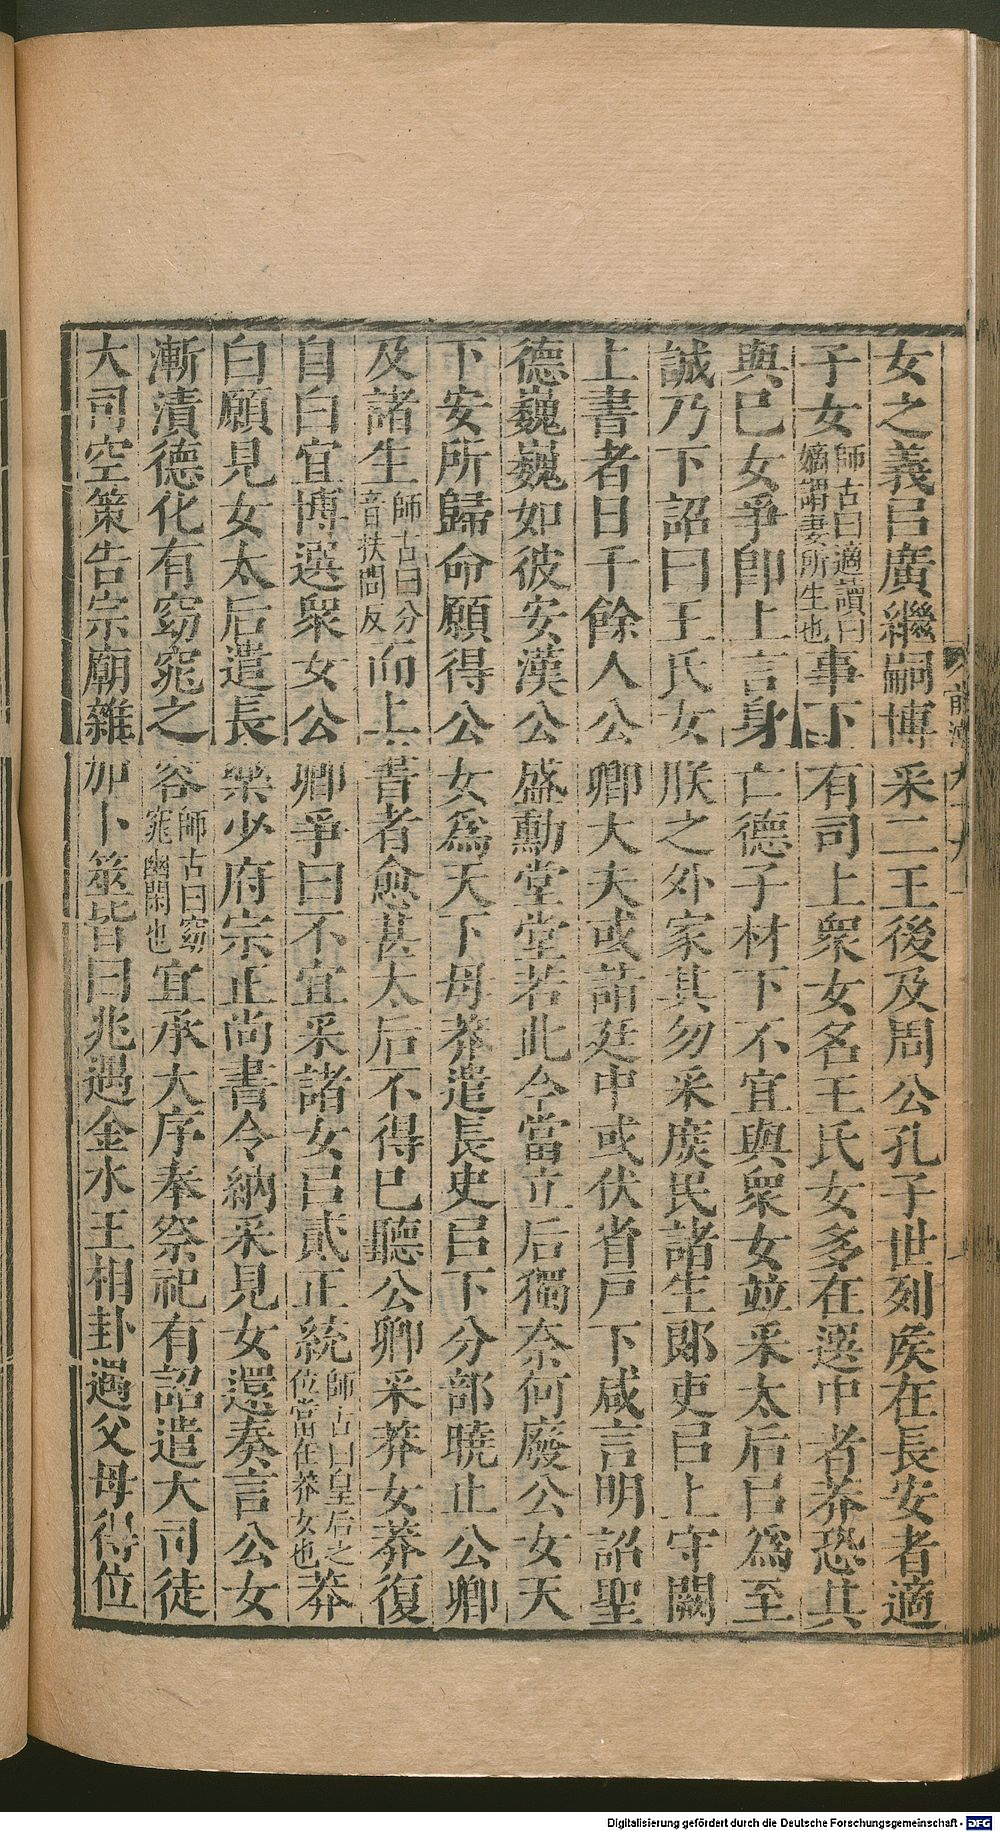 女之義㠯廣繼嗣博采二王後及周公孔子世列矦在長安者適
子女師古曰適讀曰嫡謂妻所生也事下有司上衆女名王氏女多在選中者莽恐其
與己女爭卽上言身亡德子材下不宜與衆女並采太后㠯爲至
誠乃下詔曰王氏女朕之外家其勿采庶民諸生郞吏㠯上守闕
上書者日千餘人公卿大夫或詣廷中或伏省戸下咸言明詔聖
德巍巍如彼安漢公盛勳堂堂若此今當立后獨奈何廢公女天
下安所歸命願得公女爲天下母莽遣長史㠯下分部曉止公卿
及諸生師古曰分音扶問反而上書者愈甚太后不得已聽公卿采莽女莽復
自白宜博選衆女公卿爭曰不宜采諸女㠯貳正統師古曰皇后之位當在莽女也莽
白願見女太后遣長樂少府宗正尚書令納采見女還奏言公女
漸漬德化有窈窕之容師古曰窈窕幽閑也宜承大序奉祭祀有詔遣大司徒
大司空策告宗廟雜加卜筮皆曰兆遇金水王相卦遇父母得位
前漢九十九
Digitalisierung gefördert durch die Deutsche Forschungsgemeinschaft - DFG